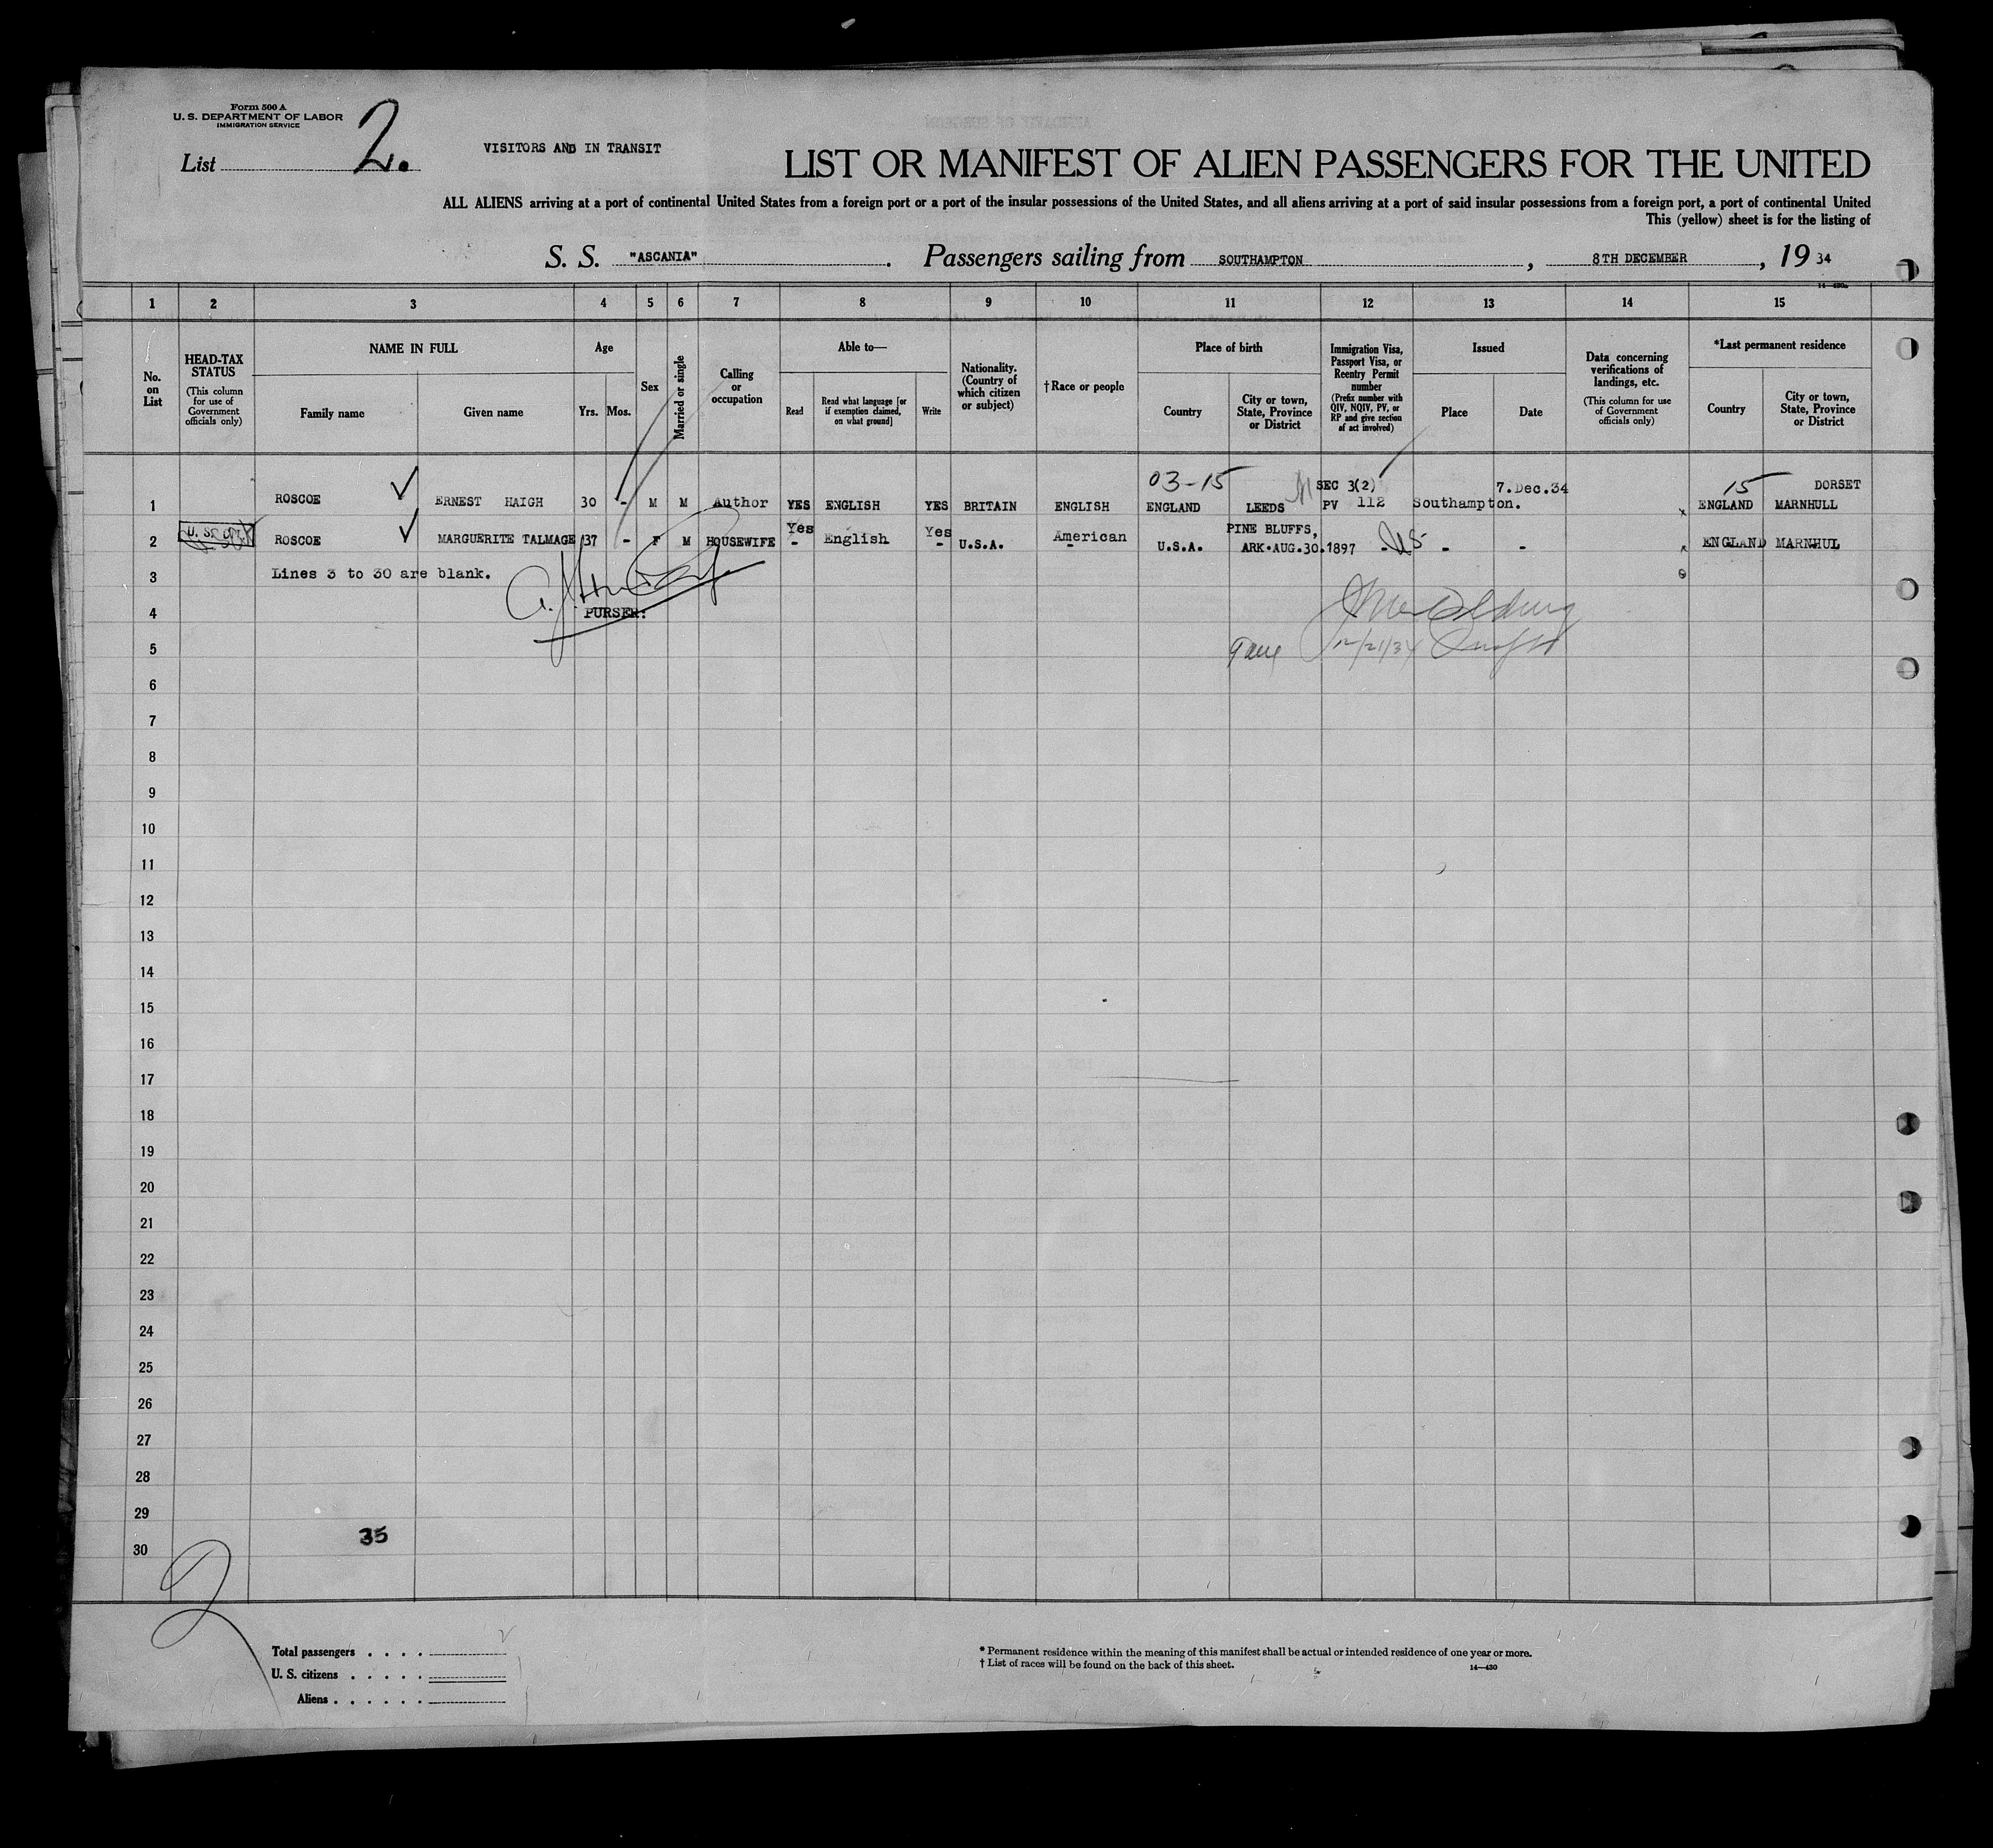 Form 500 A
U. S. DEPARTMENT OF LABOR
IMMIGRATION SERVICE
List 2.
VISITORS AND IN TRANSIT
LIST OR MANIFEST OF ALIEN PASSENGERS FOR THE UNITED
ALL ALIENS arriving at a port of continental United States from a foreign port or a port of the insular possessions of the United States, and all aliens arriving at a port of said insular possessions from a foreign port, a port of continental United
This (yellow) sheet is for the listing of
S. S. "ASCANIA" . Passengers sailing from SOUTHAMPTON , 8TH DECEMBER , 19 34
14-430a
1 2 3 4 5 6 7 8 9 10 11 12 13 14 15
No. on List
HEAD-TAX STATUS
(This column for use of Government officials only)
NAME IN FULL
Family name Given name
Age
Yrs. Mos.
Sex
Married or single
Calling or occupation
Able to—
Read
Read what language [or if exemption claimed, on what ground]
Write
Nationality. (Country of which citizen or subject)
† Race or people
Place of birth
Country
City or town, State, Province or District
Immigration Visa, Passport Visa, or Reentry Permit number
(Prefix number with QIV, NQIV, PV, or RP and give section of act involved)
Issued
Place Date
Data concerning verifications of landings, etc.
(This column for use of Government officials only)
*Last permanent residence
Country
City or town, State, Province or District
03-15 SEC 3(2) 7.Dec.34 15 DORSET
1 ROSCOE ✓ ERNEST HAIGH 30 - M M Author YES ENGLISH YES BRITAIN ENGLISH ENGLAND LEEDS PV 112 Southampton. x ENGLAND MARNHULL
2 ROSCOE ✓ MARGUERITE TALMAGE 37 - F M HOUSEWIFE Yes - English Yes - U.S.A. American - U.S.A. PINE BLUFFS, ARK.AUG.30.1897 - US - - x ENGLAND MARNHUL
3 Lines 3 to 30 are blank.
4 PURSER:
5 12/21/34
6
7
8
9
10
11
12
13
14
15
16
17
18
19
20
21
22
23
24
25
26
27
28
29
35
30
2
Total passengers . . . .
U. S. citizens . . . . .
Aliens . . . . . .
* Permanent residence within the meaning of this manifest shall be actual or intended residence of one year or more.
† List of races will be found on the back of this sheet.
14-430